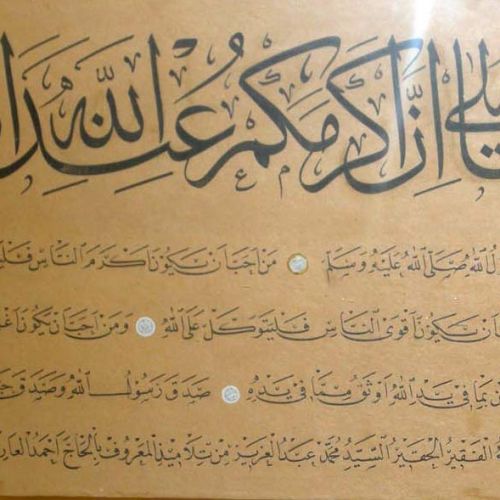 تعالى إن أكرمكم عند الله
الله صلى الله عليه وسلم من أحب أن يكون أكرم الناس
أن يكون أقوى الناس فليتوكل على الله ومن أحب أن يكون
بما في يد الله أوثق منه مما في يده صدق رسول الله وصدق
الفقير الحقير السيد محمد عبد العزيز من تلاميذ المعروف بالحاج أحمد العارف